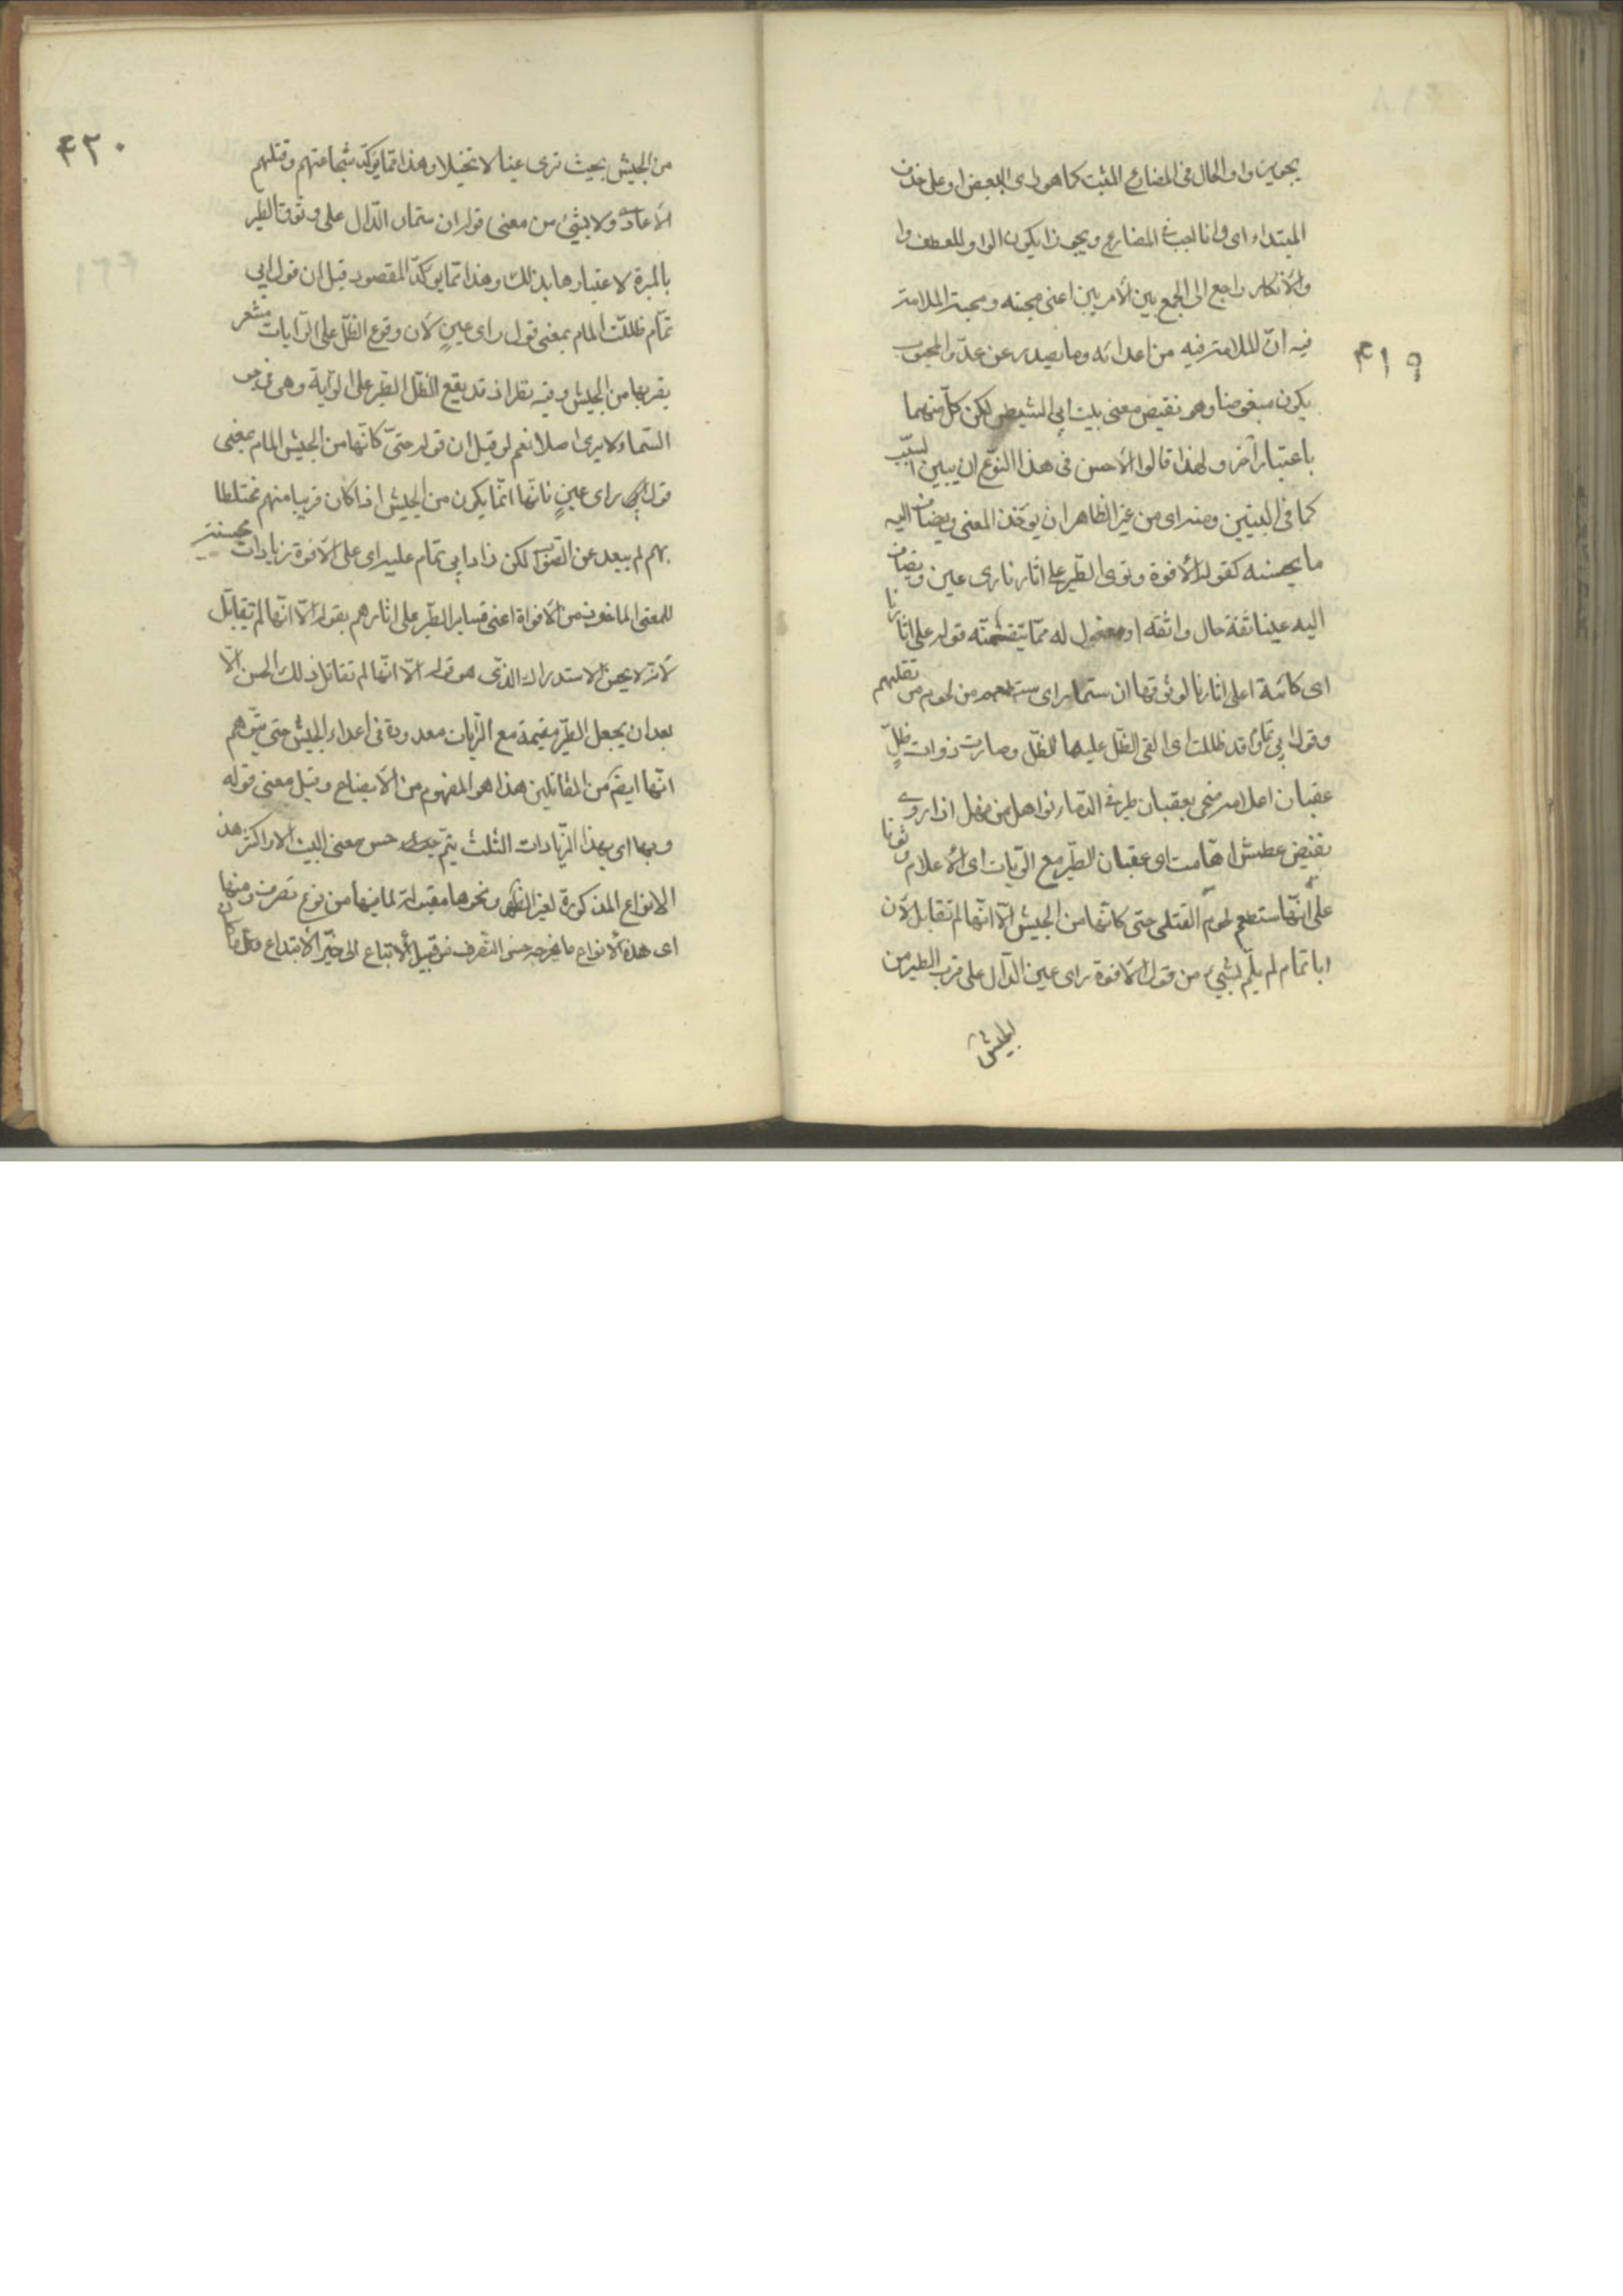 ٤١٩
يجوين واو الحال فى المضارع المثبت كما هو راى البعض او على حذف
المبتداء اى وانا احب فى المضارع ويجوز ان يكون الواو للعطف وا
والانكار راجع الى الجمع بين الامرين اعنى محبته ومحبة الملامة
فيه ان الملامة فيه من اعدائه وما يصدر عن عدو المحبوب
يكون مبغوضا وهو نقيض معنى بيت ابى الشيص لكن كل منهما
باعتبار آخر ولهذا قالوا الاحسن فى هذا النوع ان يبين السبب
كما فى البيتين ومنه اى من غير الظاهر ان يؤخذ المعنى ويضاف اليه
ما يحسنه كقول الافوة وترى الطير على اثارنا راى عين ويضاف
اليه عينا ثقة حال واثقة او مفعول له مما يتضمنه قوله على اثارنا
اى كائنة على اثارنا لوثوقها ان ستمار اى ستطعم من لحوم من نقتلهم
وقول ابى تمام قد ظللت اى القى الظل عليها للظل وصارت ذوات ظل
عقبان اعلامه ضحى بعقبان طير فى الدماء نواهل من نهل اذا روى
نقيض عطش اقامت اى عقبان الطير مع الرايات اى الاعلام وثوقا
على انها ستطعم لحوم القتلى حتى كانها من الجيش الا انها لم تقابل لان
ابا تمام لم يلم بشىء من قول الافوة راى عين الدال على قرب الطير من
الجيش
٤٢٠
من الجيش بحيث ترى عينا لا تخيلا وهذا مما يؤكد شجاعتهم وقتلهم
الاعادى ولا بشىء من معنى قوله ان ستمار الدال على وثوق الطير
بالميرة لاعتبارها بذلك وهذا مما يؤكد المقصود قيل ان قول ابى
تمام ظللت المام بمعنى قول راى عين لان وقوع الظل على الرايات مشعر
بقربها من الجيش وفيه نظر اذ قد يقع الظل الطير على الراية وهى فى جو
السماء ولا يرى اصلا نعم لو قيل ان قوله حتى كانها من الجيش المام بمعنى
قوله راى عين فانها انما يكون من الجيش اذا كان قريبا منهم مختلطا
بهم لم يبعد عن الصواب لكن زاد ابى تمام عليه اى على الافوة زيادات محسنة
للمعنى الماخوذ من الافواة اعنى تساير الطير على اثارهم بقوله الا انها لم تقاتل
لانه لا يحسن الاستدراك الذى هو قوله الا انها لم تقاتل ذلك الحسن الا
بعد ان يجعل الطير مقيمة مع الرايات معدودة فى اعداد الجيش حتى يتوهم
انها ايضا من المقاتلين هذا هو المفهوم من الايضاح وقيل معنى قوله
وبها اى بهذا الزيادات الثلث يتم حسن معنى البيت الاول اكثر هذه
الانواع المذكورة لغير الظاهر ونحوها مقبولة لما فيها من نوع تصرف ومنها
اى هذه الانواع ما يخرجه حسن التصرف من قبيل الاتباع الى حيز الابتداع وكل ما كان